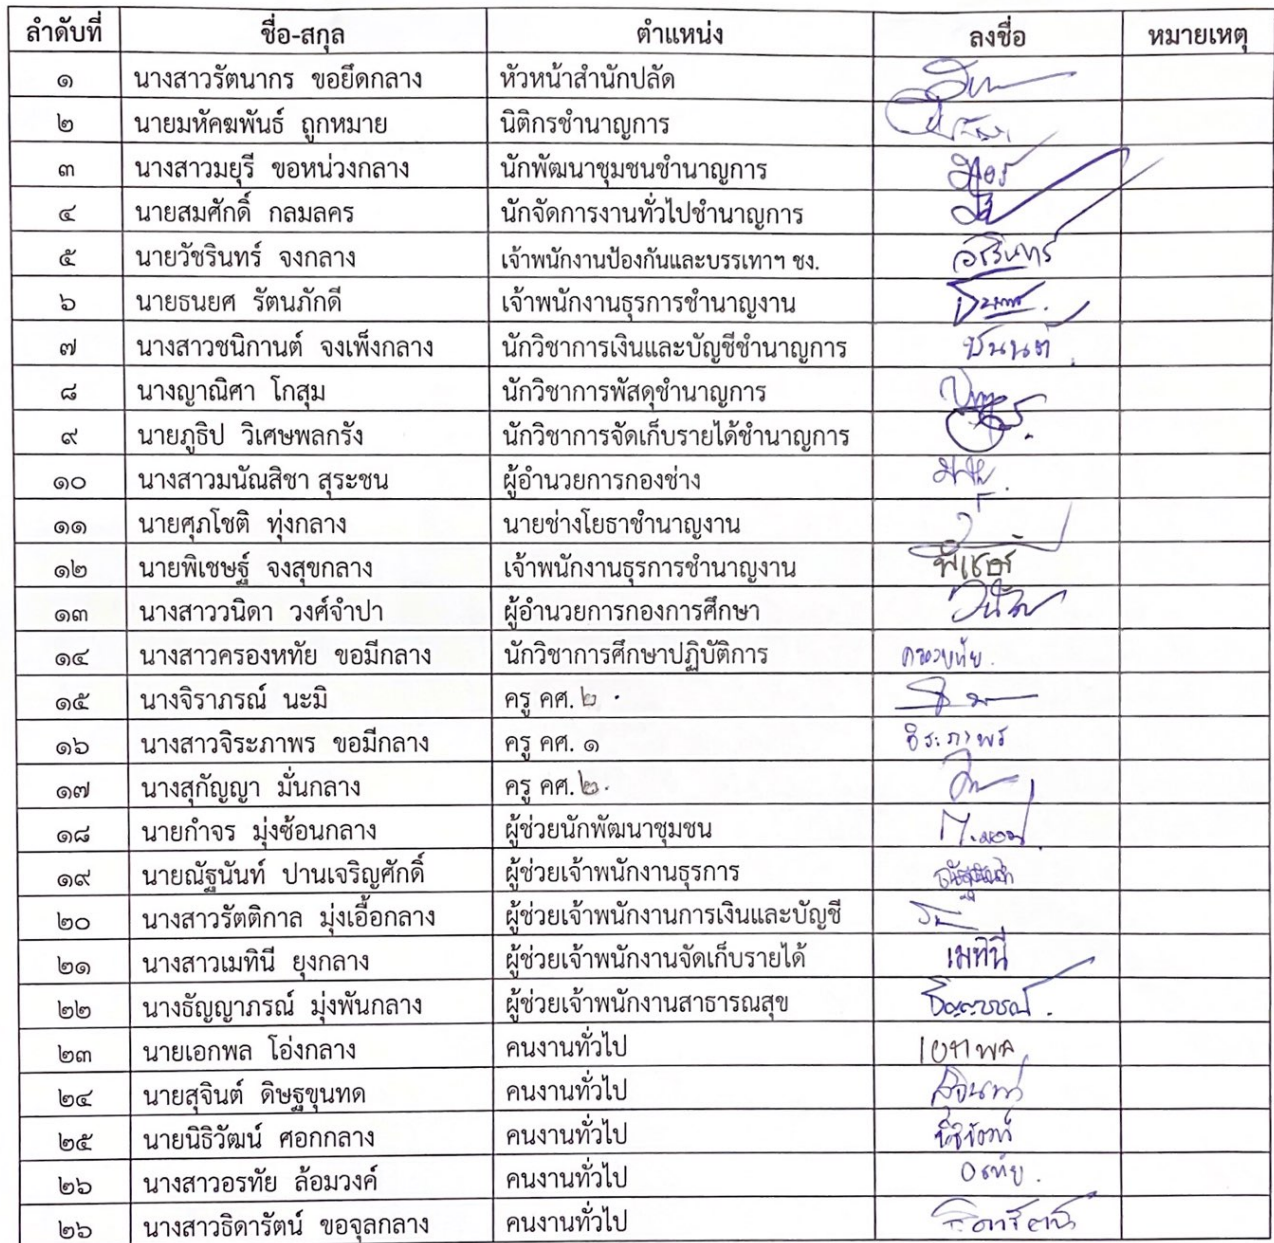 ลำดับที่ ชื่อ-สกุล ตำแหน่ง ลงชื่อ หมายเหตุ
๑ นางสาวรัตนากร ขอยึดกลาง หัวหน้าสำนักปลัด
๒ นายมหัคฆพันธ์ ถูกหมาย นิติกรชำนาญการ
๓ นางสาวมยุรี ขอหน่วงกลาง นักพัฒนาชุมชนชำนาญการ
๔ นายสมศักดิ์ กลมลคร นักจัดการงานทั่วไปชำนาญการ
๕ นายวัชรินทร์ จงกลาง เจ้าพนักงานป้องกันและบรรเทาฯ ชง.
๖ นายธนยศ รัตนภักดี เจ้าพนักงานธุรการชำนาญงาน
๗ นางสาวชนิกานต์ จงเพ็งกลาง นักวิชาการเงินและบัญชีชำนาญการ
๘ นางญาณิศา โกสุม นักวิชาการพัสดุชำนาญการ
๙ นายภูธิป วิเศษพลกรัง นักวิชาการจัดเก็บรายได้ชำนาญการ
๑๐ นางสาวมนัณสิชา สุระชน ผู้อำนวยการกองช่าง
๑๑ นายศุภโชติ ทุ่งกลาง นายช่างโยธาชำนาญงาน
๑๒ นายพิเชษฐ์ จงสุขกลาง เจ้าพนักงานธุรการชำนาญงาน
๑๓ นางสาววนิดา วงศ์จำปา ผู้อำนวยการกองการศึกษา
๑๔ นางสาวครองหทัย ขอมีกลาง นักวิชาการศึกษาปฏิบัติการ
๑๕ นางจิราภรณ์ นะมิ ครู คศ. ๒
๑๖ นางสาวจิระภาพร ขอมีกลาง ครู คศ. ๑ จิระภาพร
๑๗ นางสุกัญญา มั่นกลาง ครู คศ. ๒
๑๘ นายกำจร มุ่งซ้อนกลาง ผู้ช่วยนักพัฒนาชุมชน
๑๙ นายณัฐนันท์ ปานเจริญศักดิ์ ผู้ช่วยเจ้าพนักงานธุรการ
๒๐ นางสาวรัตติกาล มุ่งเอื้อกลาง ผู้ช่วยเจ้าพนักงานการเงินและบัญชี
๒๑ นางสาวเมทินี ยุงกลาง ผู้ช่วยเจ้าพนักงานจัดเก็บรายได้ เมทินี
๒๒ นางธัญญาภรณ์ มุ่งพันกลาง ผู้ช่วยเจ้าพนักงานสาธารณสุข
๒๓ นายเอกพล โอ่งกลาง คนงานทั่วไป เอกพล
๒๔ นายสุจินต์ ดิษฐขุนทด คนงานทั่วไป
๒๕ นายนิธิวัฒน์ ศอกกลาง คนงานทั่วไป
๒๖ นางสาวอรทัย ล้อมวงค์ คนงานทั่วไป อรทัย
๒๖ นางสาวธิดารัตน์ ขอจุลกลาง คนงานทั่วไป